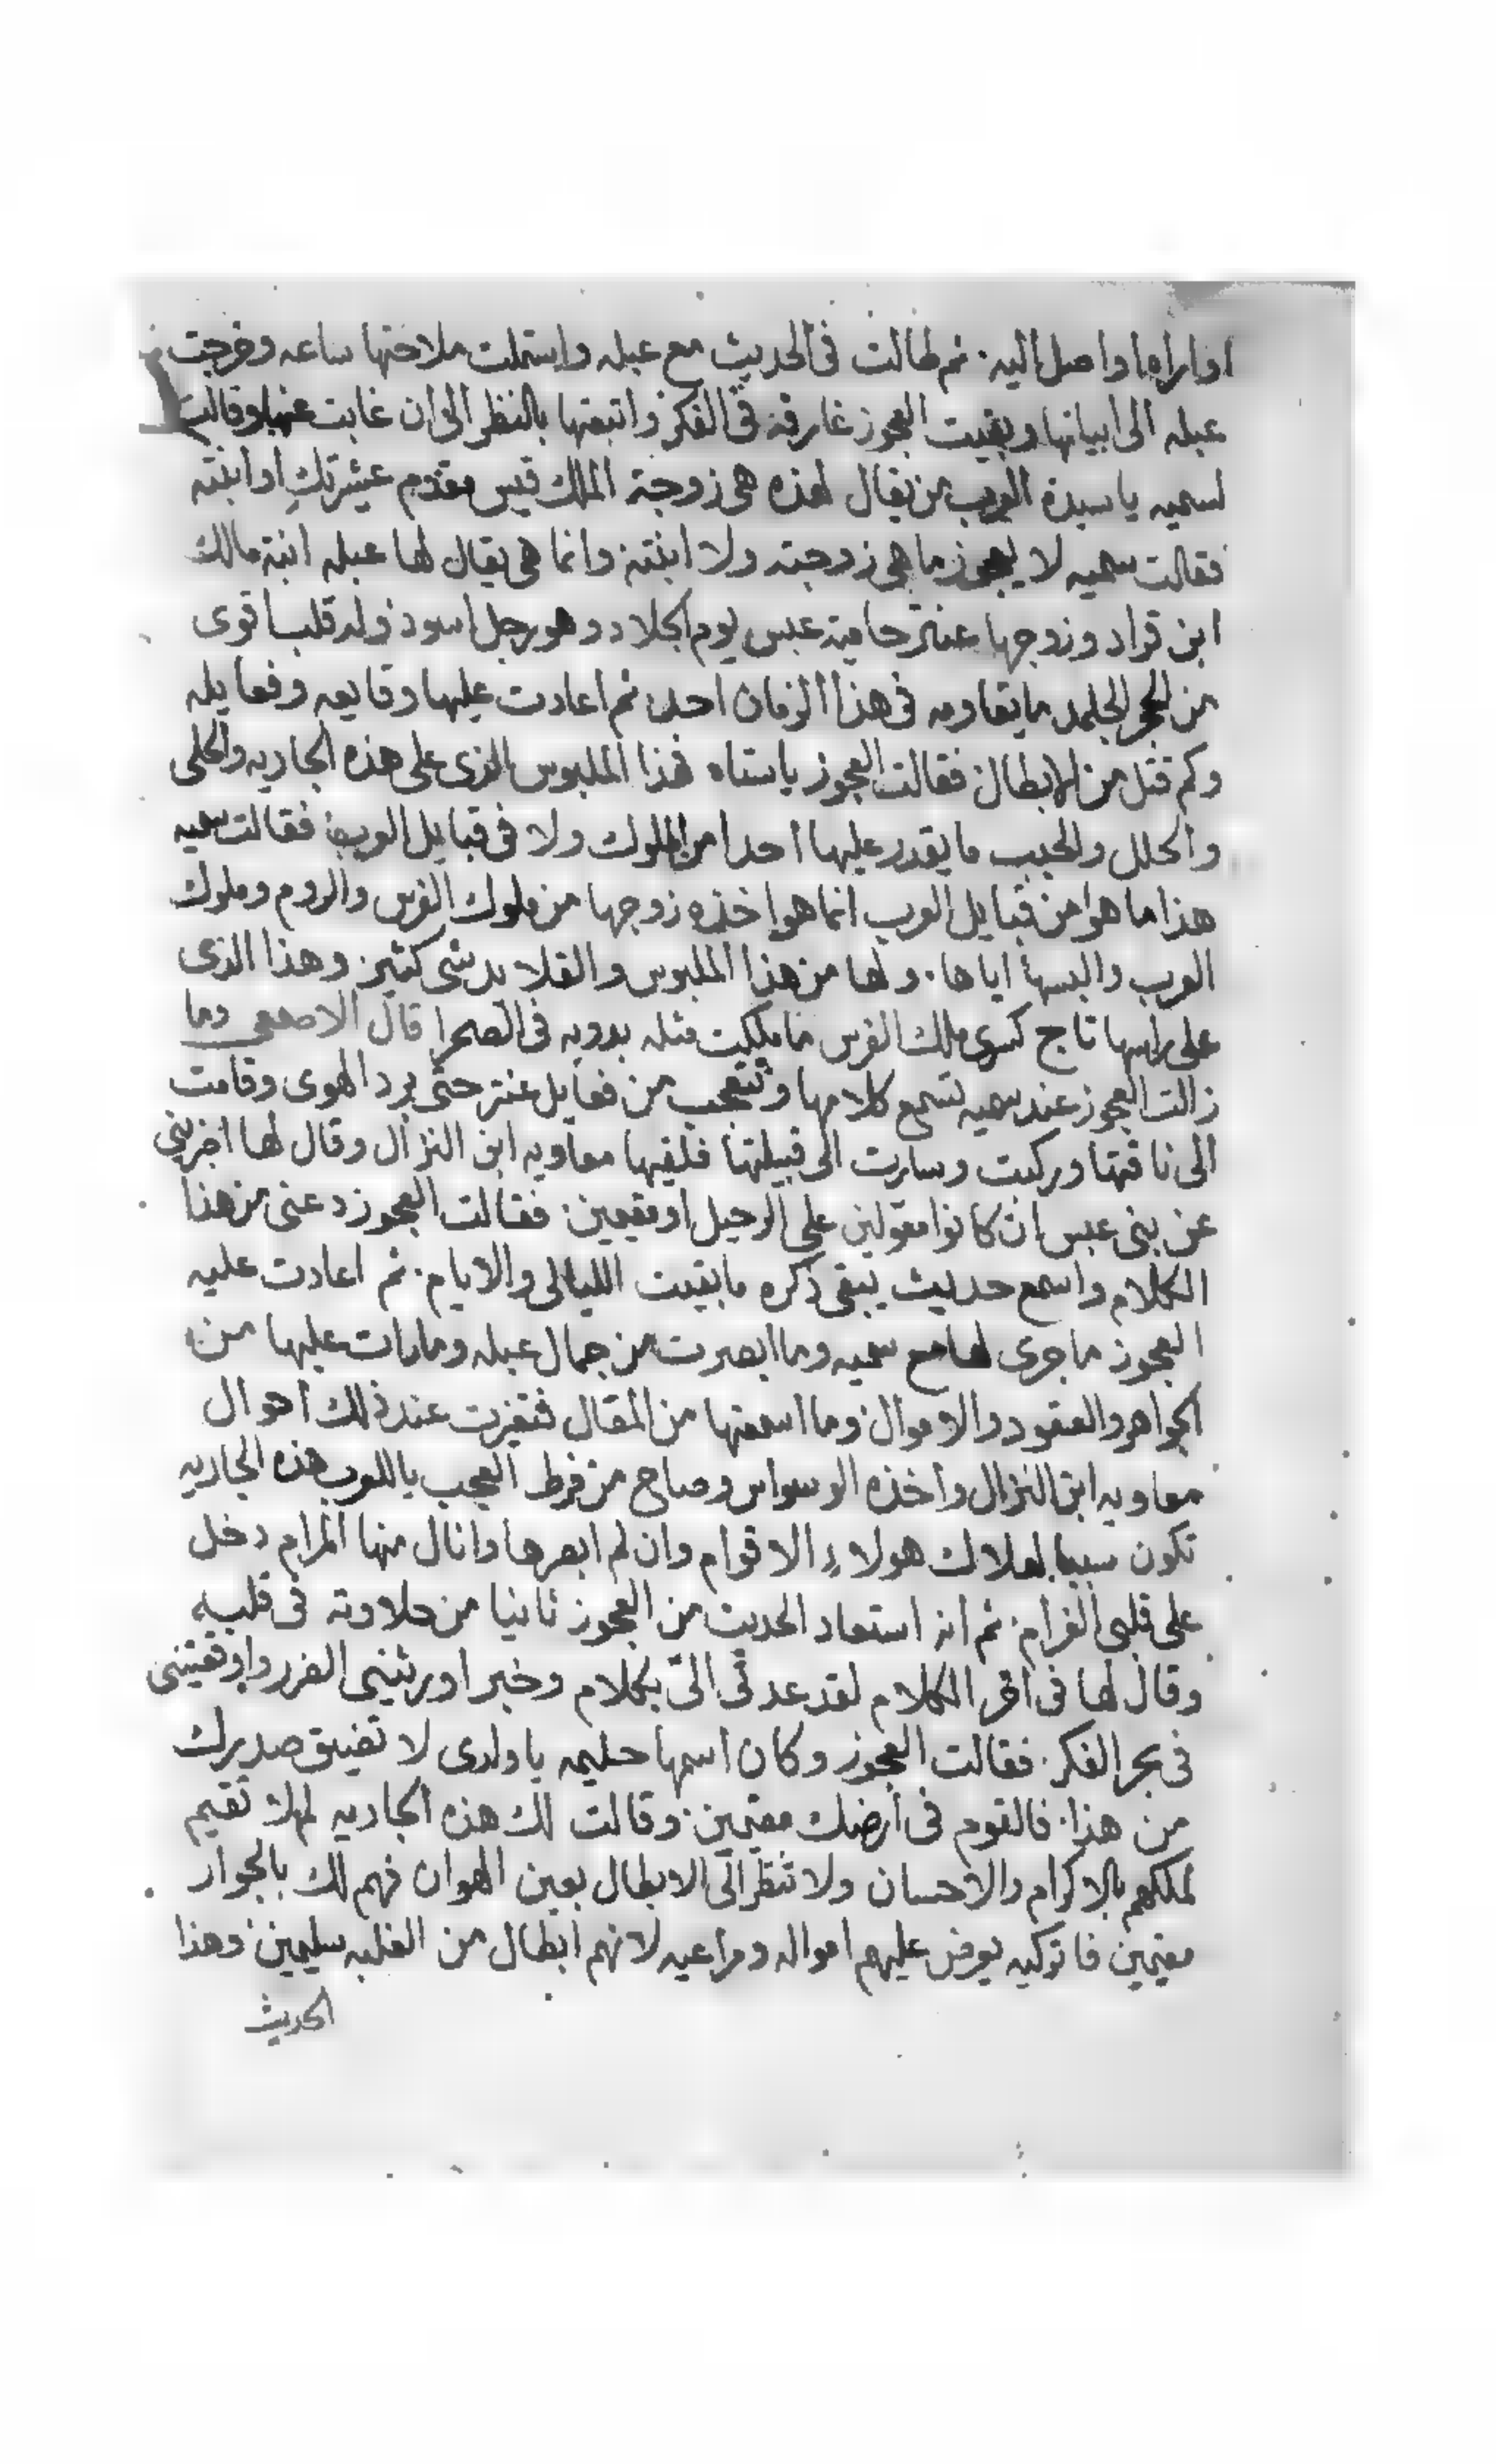 او اراها واصل اليه . ثم طالت فى الحديث مع عبله واستملت ملاحتها ساعه وخرجت
عبله الى ابياتها وبقيت العجوز غارقة فى الفكر واتبعتها بالنظر الى ان غابت عنها وقالت
لسميه يا سيدة العرب من يقال لهذه هى زوجة الملك قيس مقدم عشيرتكِ او ابنته
فقالت سميه لا يعجوز ما هى زوجته ولا ابنته وانما هى يقال لها عبله ابنة مالك
ابن قراد وزوجها عنتر حامية عبس يوم الجلاد وهو رجل اسود وله قلبا قوى
من الحجر الجلمد ما يقاومه فى هذا الزمان احد ثم اعادت عليها وقايعه وفعايله
وكم قتل من الابطال فقالت العجوز ياستاه فهذا الملبوس الذى على هذه الجاريه والحلى
والحلل والجيب ما يقدر عليها احدا من الملوك ولا فى قبايل العرب فقالت سميه
هذا ما هوا من قبايل العرب انما هو اخذه زوجها من ملوك الفرس والروم وملوك
العرب والبسها اياها . ولها من هذا الملبوس والقلايد شى كثير . وهذا الذى
على راسها تاج كسرى ملك الفرس ما ملكت مثله بدويه فى الصحرا قال الاصمعى وما
زالت العجوز عند سميه تسمع كلامها وتتعجب من فعايل عنتر حتى برد الهوى وقامت
الى ناقتها وركبت وسارت الى قبيلتها فلقيها معاويه ابن النزال وقال لها اخبرينى
عن بنى عبس ان كانوا معولين على الرحيل او مقيمين . فقالت العجوز دعنى من هذا
الكلام واسمع حديث يبقى ذكره ما بقيت الليالى والايام . ثم اعادت عليه
العجوز ما جرى لها مع سميه وما ابصرت من جمال عبله وما رات عليها من
الجواهر والعقود والاموال وما اسمعتها من المقال فتغيرت عند ذلك احوال
معاويه ابن النزال واخذه الوسواس وصاح من فرط العجب ياللعرب هذه الجاريه
تكون سببا لهلاك هولاء الاقوام وان لم ابصرها وانال منها المرام دخل
على قلبى الغرام . ثم انه استعاد الحديث من العجوز ثانيا من حلاوته فى قلبه
وقال لها فى اخر الكلام لقد عدتى الىّ بكلام وخبر اورثتينى الضرر واوقعتينى
فى بحر الفكر . فقالت العجوز وكان اسمها حليمه يا ولدى لا تضيق صدرك
من هذا . فالقوم فى ارضك مقيمين . وقالت لك هذه الجاريه لملا تقيم
لملكهم بالاكرام والاحسان ولا تنظر الى الابطال بعين الهوان فهم لك بالجوار
مقيمين فاتركيه يعرض عليهم امواله ومراعيه لانهم ابطال من الغلبه سليمين وهذا
الحديث